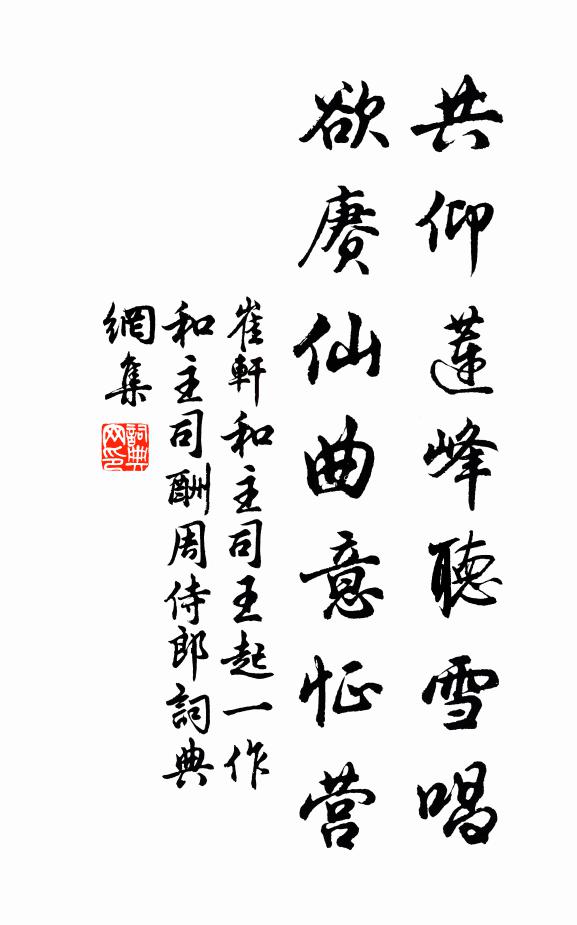 共仰蓮峰聽雪唱
欲赓仙曲意怔营
崔軒和主司王起一作
和主司酬周侍郎詞典
網集
詞典
网印